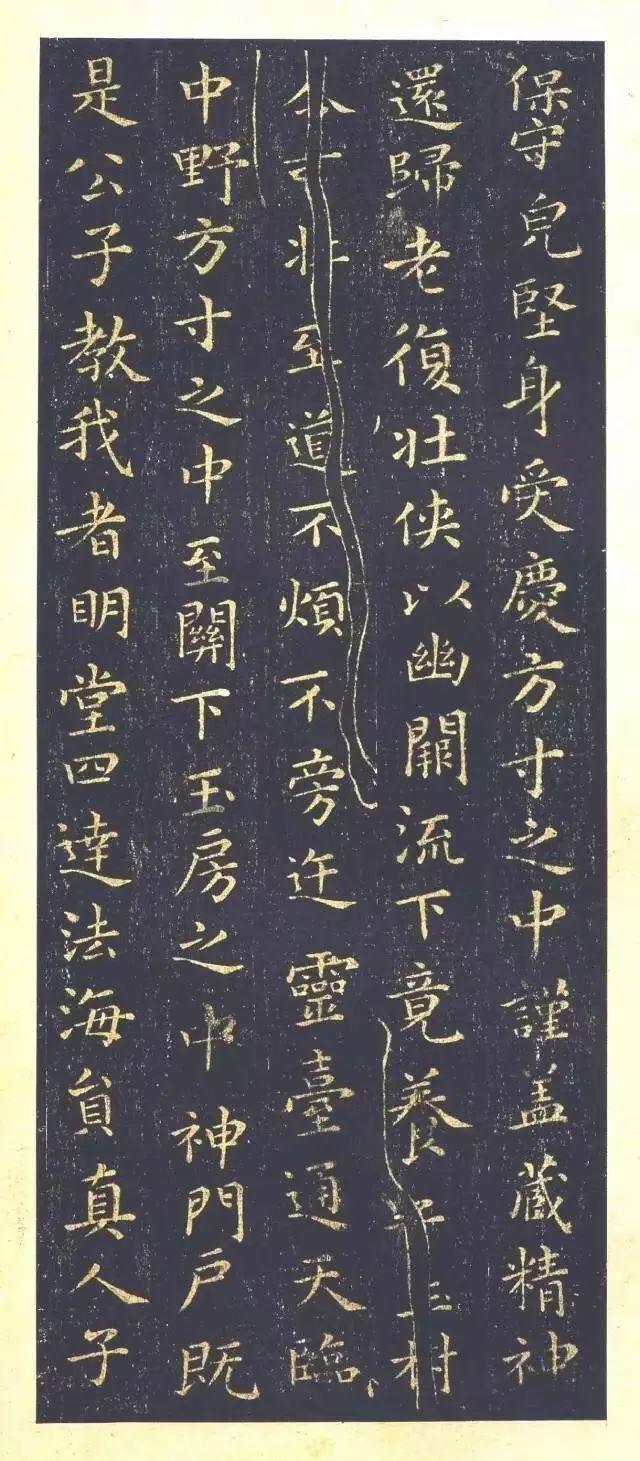 保守皃堅身受慶方寸之中謹盖藏精神
還歸老復壯俠以幽闕流下竟養玉樹
至道不煩不旁迕靈臺通天臨
中野方寸之中至關下玉房之中神門戶既
是公子教我者明堂四達法海負真人子